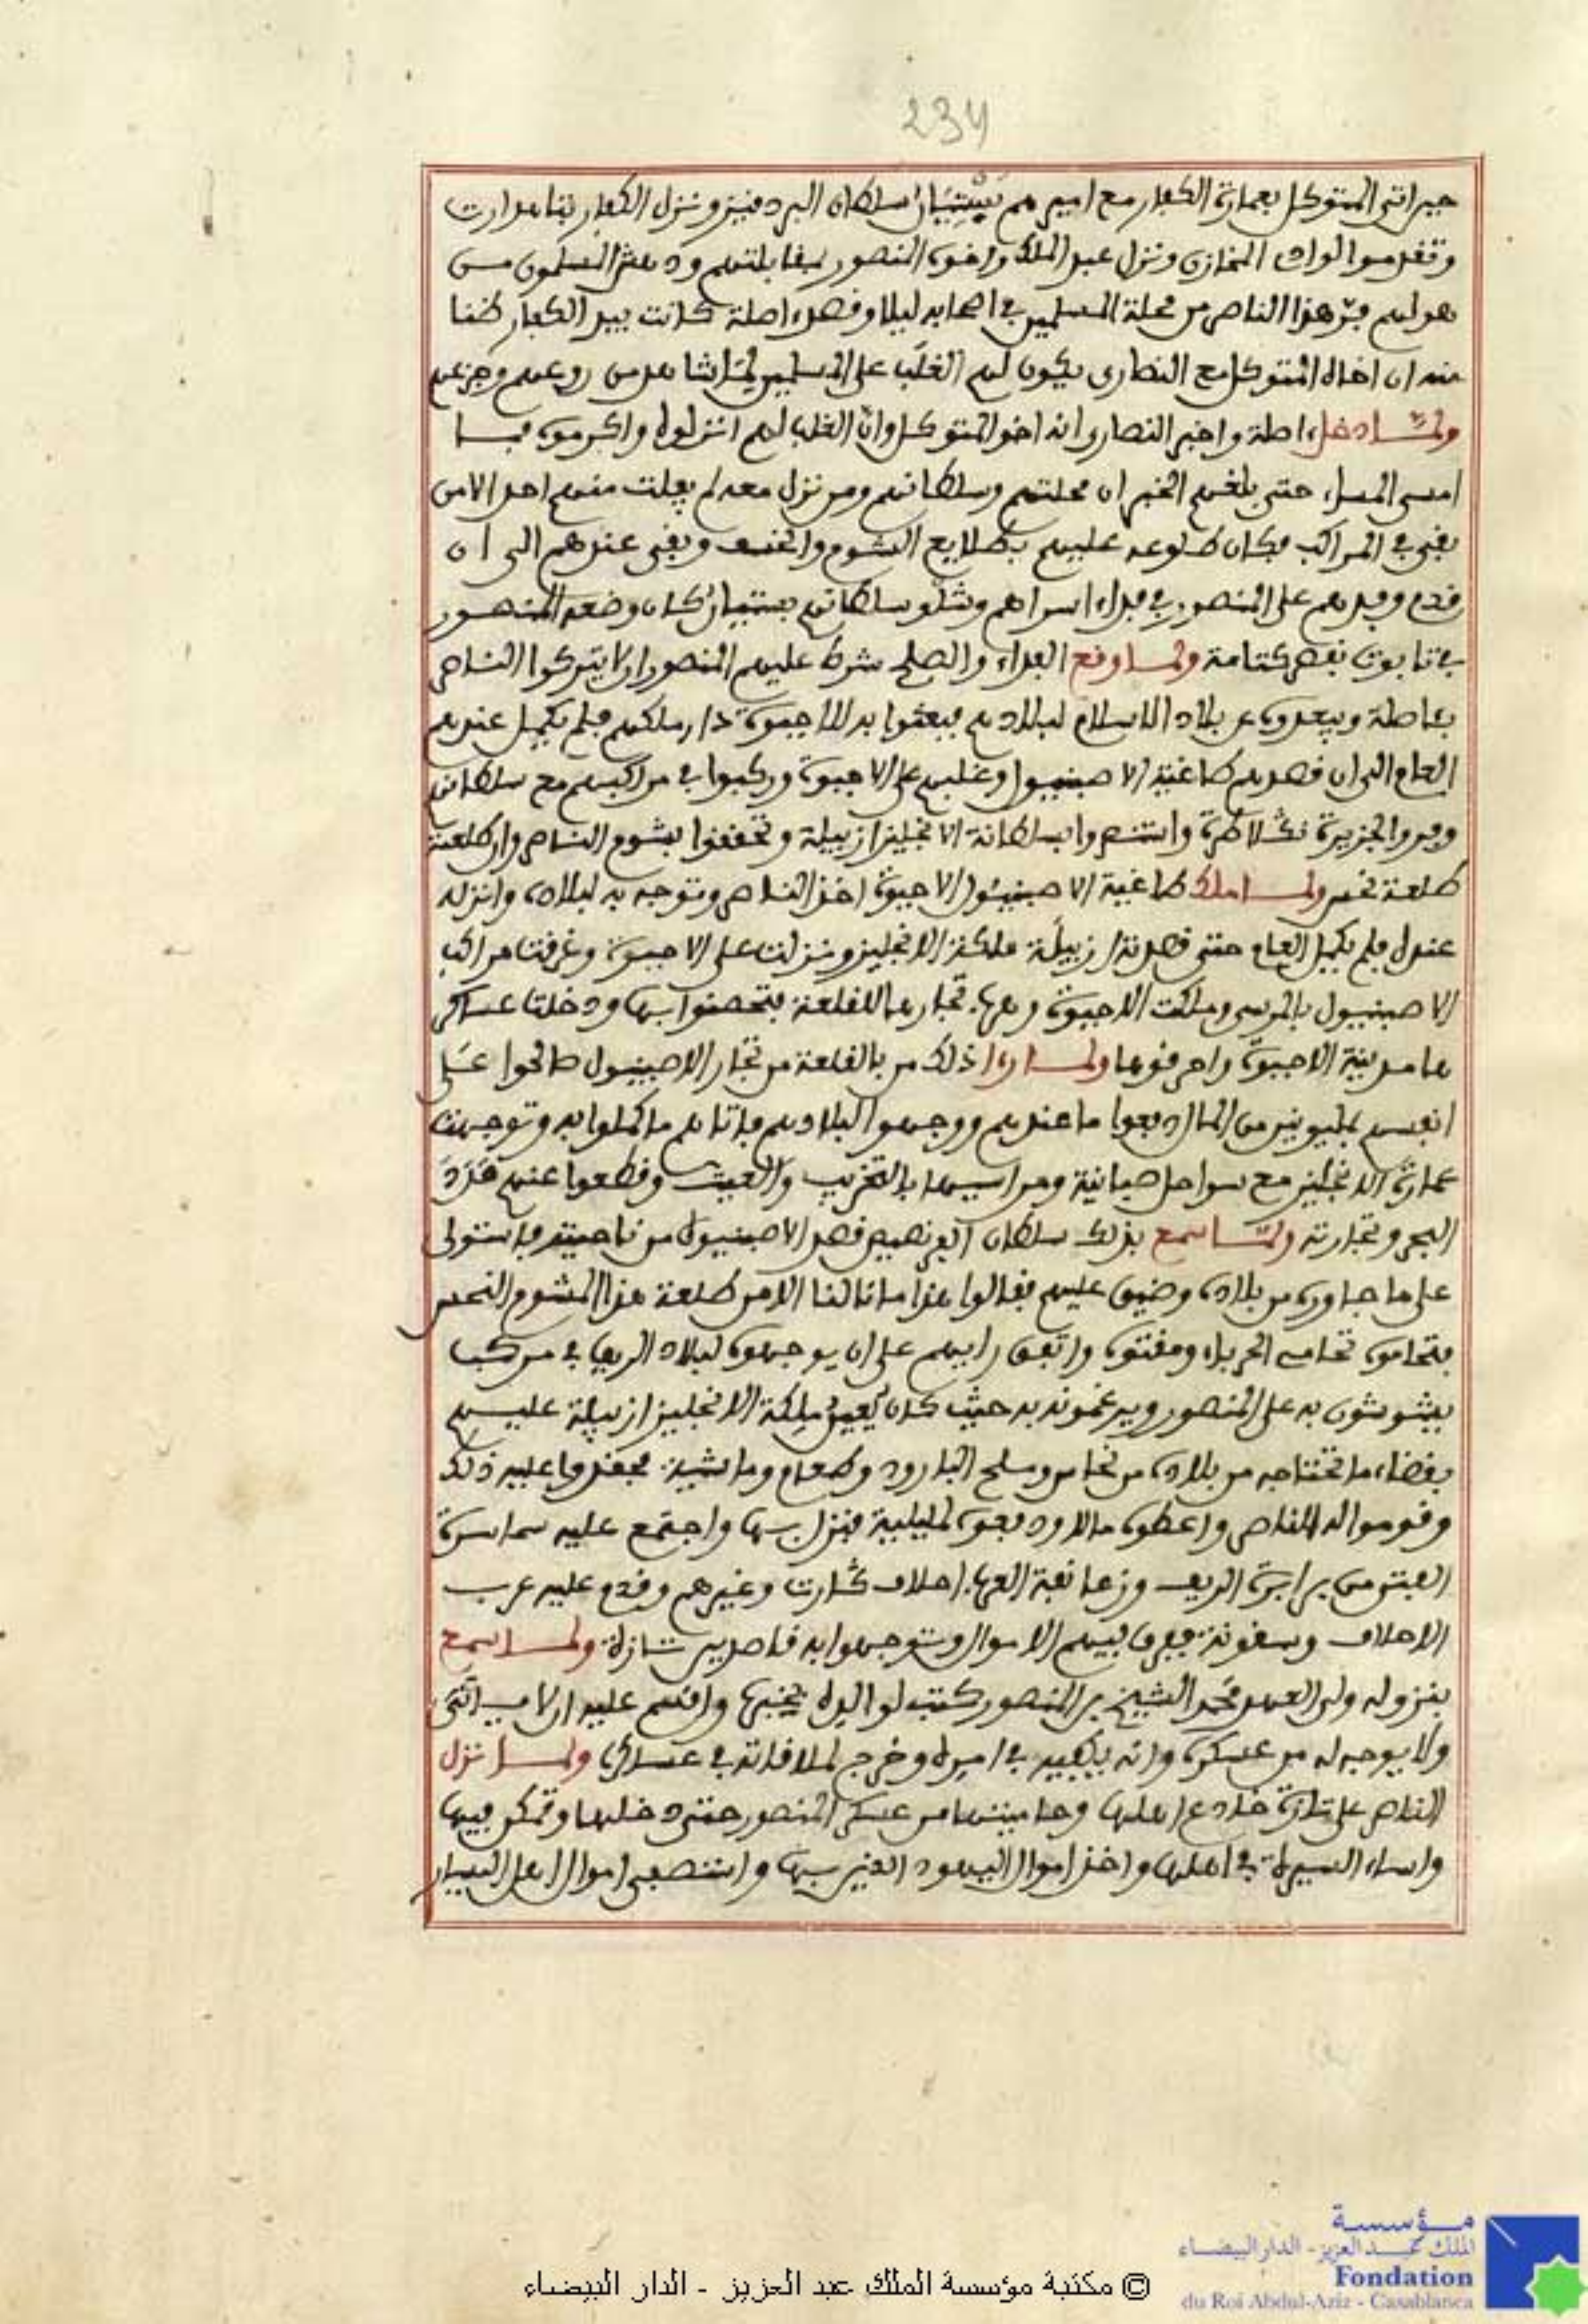 234
حين اتى المتوكل بعمارة الكفار مع اميرهم بستيان سلطان البردقيز ونزل الكفار بتاهدارت
وتقدموا لواد المخازن ونزل عبد الملك واخوه المنصور بمقابلتهم ودهش المسلمون من
هولهم فرّ هذا الناصر من محلة المسلمين في اصحابه ليلا وقصد اصلة كانت بيد الكفار ظنا
منه ان اخاه المتوكل مع النصارى يكون لهم الغلب على المسلمين لما شاهد من روعهم وجزعهم
ولما دخل اصلة واخبر النصارى انه اخو المتوكل وانّ الغلب لهم انزلوه واكرموه فما
امسى المساء حتى بلغهم الخبر ان محلتهم وسلطانهم ومن نزل معه لم يفلت منهم احد الا من
بقي في المراكب فكان طلوعه عليهم بطلايع الشوم والخسف وبقي عندهم الى ان
قدم وفدهم على المنصور في فداء اسراهم وشلو سلطانهم بستيان كان وضعه المنصور
في تابوت بقصر كتامة ولما وقع الفداء والصلح شرط عليهم المنصور ان لا يتركوا الناصر
باصلة ويبعدوه عن بلاد الاسلام لبلادهم فبعثوا به للاجبونة دار ملكهم فلم يكمل عندهم
العام الى ان قصدهم طاغية الاصبنيول وغلبهم على الاجبونة وركبوا في مراكبهم مع سلطانهم
وفروا لجزيرة نكلاطرة وانتصروا بسلطانة الانجليز ازبيلة وتحققوا بشوم الناصر وان طلعته
طلعة نحس ولما ملك طاغية الاصبنيول الاجبونة اخذ الناصر وتوجه به لبلاده وانزله
عنده فلم يكمل العام حتى قصدته ازبيلة ملكة الانجليز ونزلت على الاجبونة وغرقت مراكب
الاصبنيول بالمرسى وملكت الاجبونة وفر تجارها للقلعة فتحصنوا بها ودخلت عساكر
ها مدينة الاجبونة واحرقوها ولما رءا ذلك من بالقلعة من تجار الاصبنيول صالحوا على
انفسهم بمليونين من المال دفعوا ما عندهم ووجهوا لبلادهم فاتاهم ما كملوا به وتوجهت
عمارة الانجليز مع سواحل صبانية ومراسيها بالتخريب والعيث وقطعوا عنهم
البحر وتجارته ولما سمع بذلك سلطان الفرنصيص قصد الاصبنيول من ناحيته فاستولى
على ما جاوره من بلاده وضيق عليهم فقالوا هذا ما نالنا الا من طلعة هذا المشوم النحس
فتحاموه تحامي الجرباء ومقتوه واتفق رايهم على ان يوجهوه لبلاد الريف في مركب
يشوشون به على المنصور ويرغمونه به حيث كان يعين ملكة الانجليز ازبيلة عليهم
بقضاء ما تحتاجه من بلاده من نحاس وملح البارود وطعام وماشية فحقدوا عليه ذلك
وقوموا له الناصر واعطوه مالا ودفعوه لمليلية فنزل بها واجتمع عليه سماسرة
الفتن من برابرة الريف وزعانفة العرب احلاف كارت وغيرهم وقدم عليه عرب
الاحلاف وسقونة ففرق فيهم الاموال وتوجهوا به قاصدين تازة ولما سمع
بنزوله ولي العهد محمد الشيخ بن المنصور كتب لوالده يخبره واقسم عليه ان لا ياتي
ولا يوجه له من عسكره وانه يكفيه في امره وخرج لملاقاته في عساكره ولما نزل
الناصر على تازة خادع اهلها وحاميتها من عسكر المنصور حتى دخلها وتمكن فيها
واساء السيرة في اهلها واخذ اموال اليهود الذين بها واستصفى اموال اهل اليسار
مؤسسة
الملك عبد العزيز - الدار البيضاء
Fondation
du Roi Abdul-Aziz - Casablanca
© مكتبة مؤسسة الملك عبد العزيز - الدار البيضاء